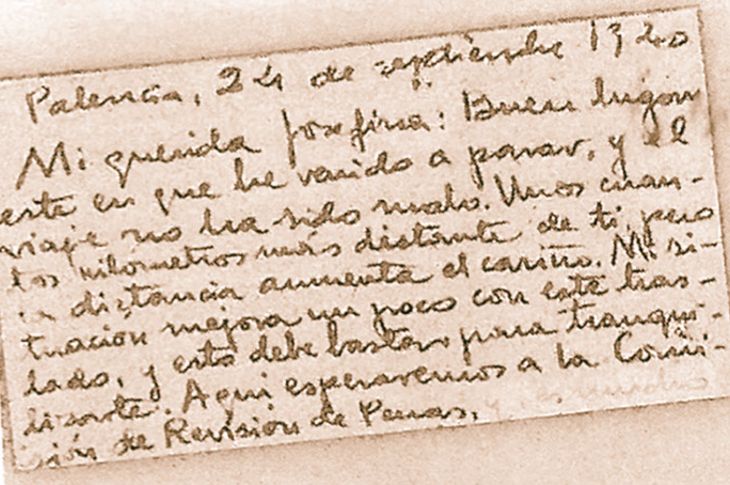 Palencia, 24 de septiembre 1940
Mi querida Josefina: Buen lugar
este en que he venido a parar, y el
viaje no ha sido malo. Unos cuan-
tos kilometros más distante de ti, pero
la distancia aumenta el cariño. Mi si-
tuación mejora un poco con este tras-
lado, y esto debe bastar para tranqui-
lizarte. Aqui esperaremos a la Comi-
sión de Revisión de Penas,